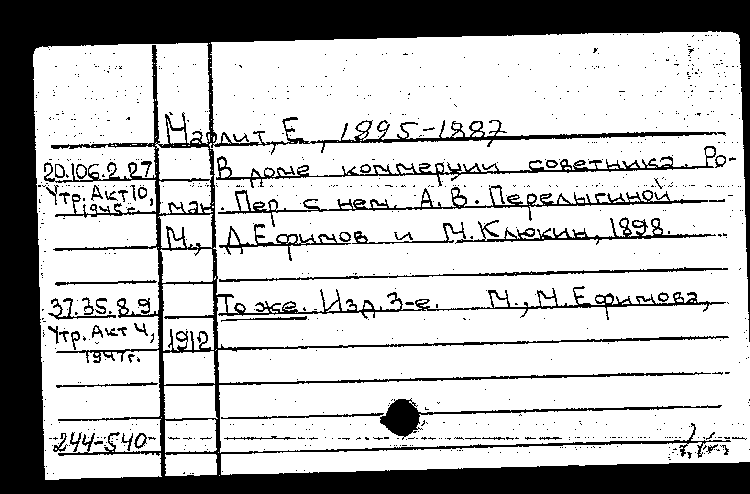 Марлит, Е., 1895-1887
20.106.2.27 В доме коммерции советника. Ро-
Утр. Акт 10, ман. Пер. с нем. А. В. Перелыгиной.
1945 г.
М., Д. Ефимов и М. Клюкин, 1898.
37.35.8.9. То же. Изд. 3-е. М., М. Ефимова,
Утр. Акт 4, 1912
1947г.
244-540